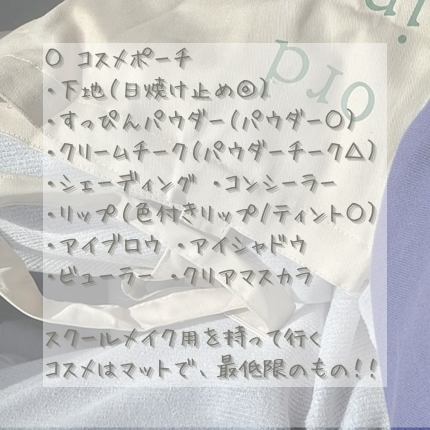 ○ コスメポーチ
・下地(日焼け止め◎)
・すっぴんパウダー(パウダー○)
・クリームチーク(パウダーチーク△)
・シェーディング ・コンシーラー
・リップ(色付きリップ/ティント○)
・アイブロウ ・アイシャドウ
・ビューラー ・クリアマスカラ
スクールメイク用を持って行く
コスメはマットで、最低限のもの!!